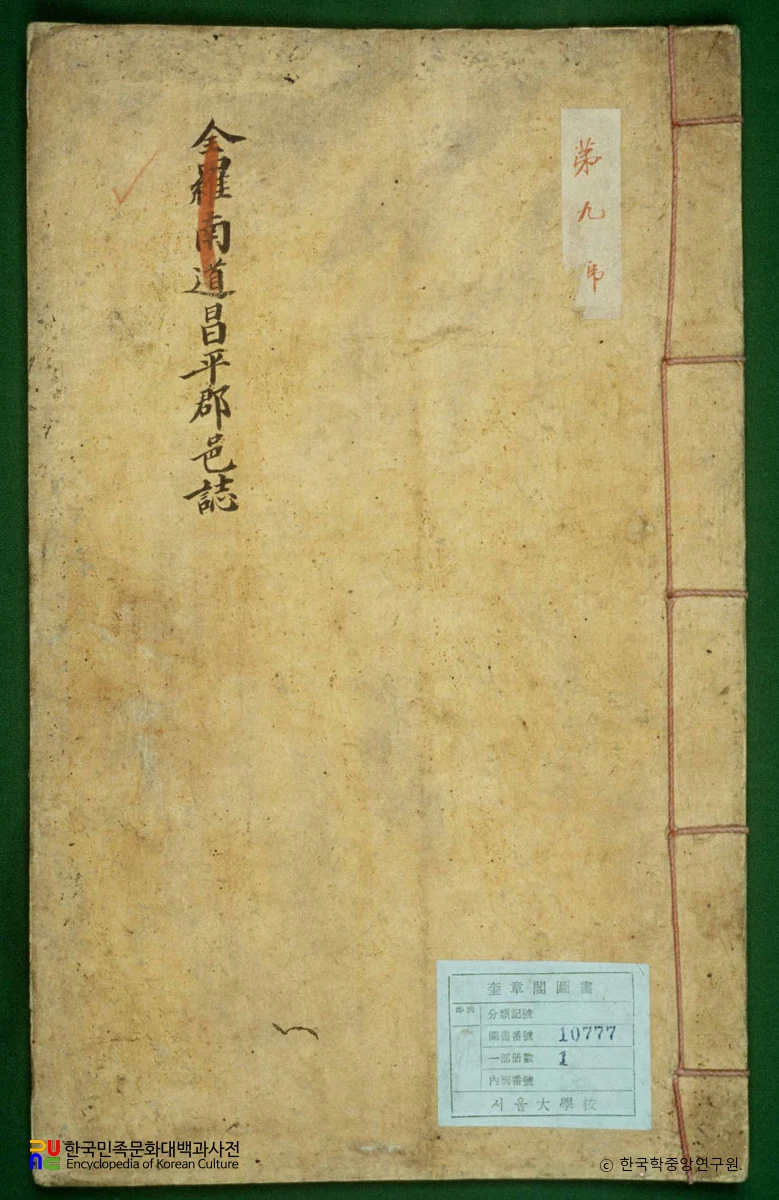 第九号
全羅南道昌平郡邑誌
奎章閣圖書
部別
分類記號
圖書番號 10777
一部册數 1
內別番號
서울大學校
한국민족문화대백과사전
Encyclopedia of Korean Culture
ⓒ 한국학중앙연구원